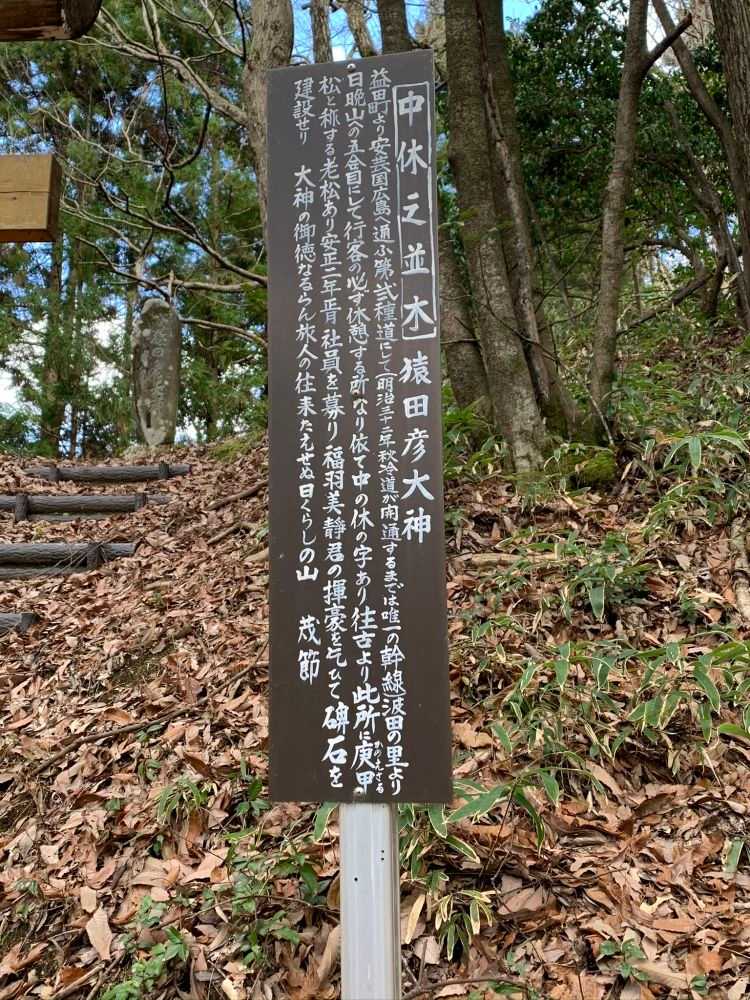 中休之並木 猿田彦大神
益田町より安芸国広島へ通ふ第弐種道にして(明治三十二年秋冷道が開通するまでは唯一の幹線)波田の里より
日晩山への五合目にして行客の必ず休憩する所なり依て中の休の字あり往古より此所に庚申
かのえさる
松と称する老松あり安正二年 社員を募り福羽美静君の揮豪を乞ひて碑石を
建設せり 大神の御徳なるらん旅人の往来たえせぬ日くらしの山 茂節